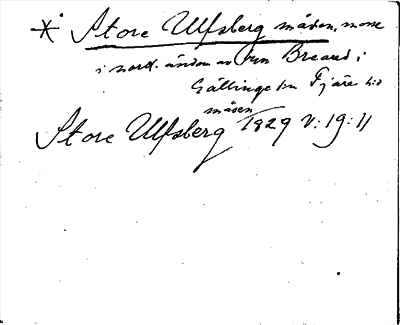 * Store Ulfsberg måsen, mosse
i nordl. ändan av byn Breared i
Gällinge sn Fjäre hd
måsen
Store Ulfsberg 1829 V: 19: 11